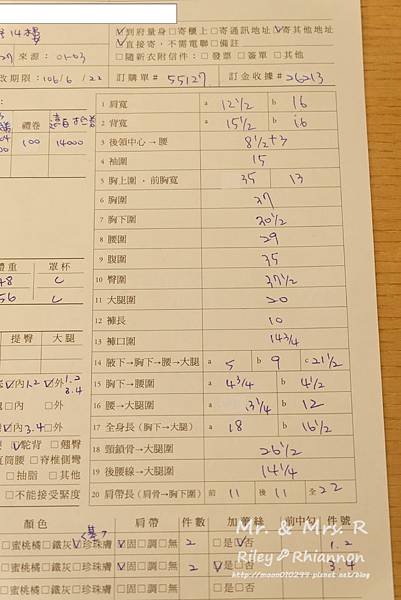 14樓
☑到府量身□寄櫃上□寄通訊地址☑寄其他地址
來源：01-03 ☑直接寄，不需電聯□備註
□隨新衣附信件：□發票 □簽單 □其他
改期限：106/6 /22 訂購單# 55127 訂金收據# 26213
1 肩寬 a 12 1/2 b 16
2 背寬 a 15 1/2 b 16
禮卷 3 後領中心→腰 8 1/2+3
100 14000 4 袖圍 15
5 胸上圍．前胸寬 35 13
6 胸圍 37
7 胸下圍 30 1/2
8 腰圍 29
體重 罩杯 9 腹圍 35
48 C 10 臀圍 37 1/2
56 C 11 大腿圍 20
12 褲長 10
提臀 大腿 13 褲口圍 14 3/4
14 腋下→胸下→腰→大腿 a 5 b 9 c 21 1/2
☑內1.2 ☑外1.2 3.4 15 胸下→腰圍 a 4 3/4 b 4 1/2
□內 □外 16 腰→大腿圍 3 1/4 b 12
☑內3.4□外 17 全身長(胸下→大腿) a 18 b 16 1/2
☑駝背 □翹臀 18 頸鎖骨→大腿圍 26 1/2
直筒腰 □脊椎側彎 19 後腰線→大腿圍 14 1/4
□抽脂 □其他
□不能接受緊度 20 肩帶長(肩骨→胸下圍) 前 11 後 11 全22
顏色 肩帶 件數 加蕾絲 前中勾 件號
□蜜桃橘□鐵灰☑珍珠膚 ☑固□調□無 2 □是☑否 1.2
□蜜桃橘□鐵灰☑珍珠膚 ☑固□調□無 2 ☑是□否 3.4
□蜜桃橘□鐵灰□珍珠膚 □固□調□無 □是□否
Mr. & Mrs. R
Riley Rhiannon
http://moon010299.pixnet.net/blog